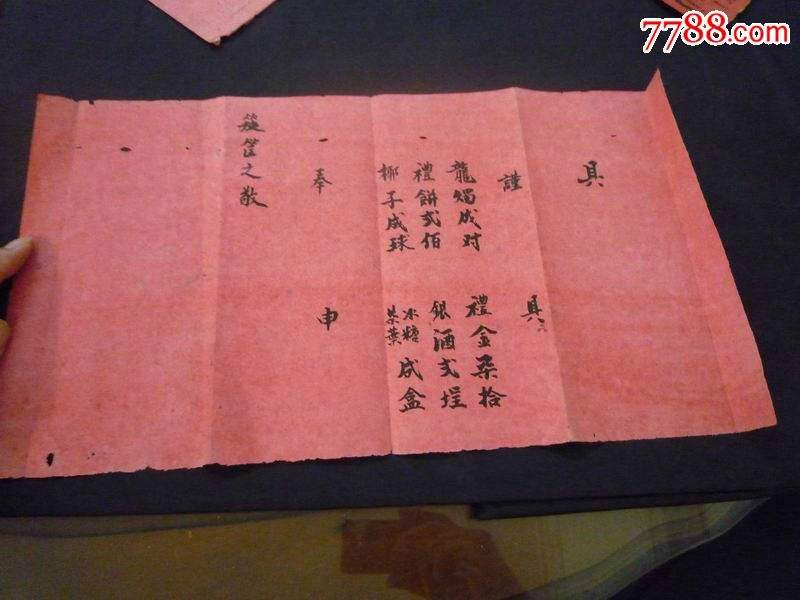 7788.com
具
謹 具
龍燭成对 禮金柒拾
禮餅弍佰 銀酒弍埕
椰子成球 冰糖 茶葉 成盒
奉 申
筐之敬